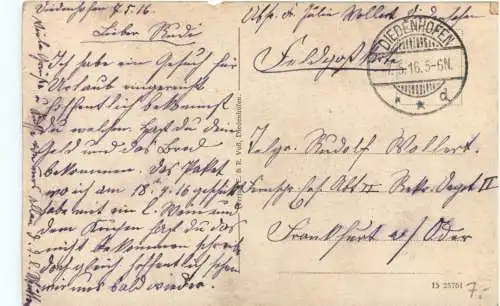 Diedenhofen 7.5.16.
Lieber Rudi
Ich habe ein Gesuch für
Urlaub eingereicht
hoffentlich bekommst
du welchen. Hast du dein
Geld und das Brod
bekommen. Das Paket
wo ich am 18.4.16 geschickt
habe mit ein L. Wein und
dem Kuchen hast du das
nicht bekommen schreib
doch gleich hoffentlich sehen
wir uns bald wieder.
Abs. Julie Wollert Diedenhofen
Feldpostkarte
DIEDENHOFEN
.5.16.5-6N.
* * d
Telgr. Rudolf Wollert.
Abt II Rekr. Dept II
Frankfurt a/ Oder
15 25761
7.-